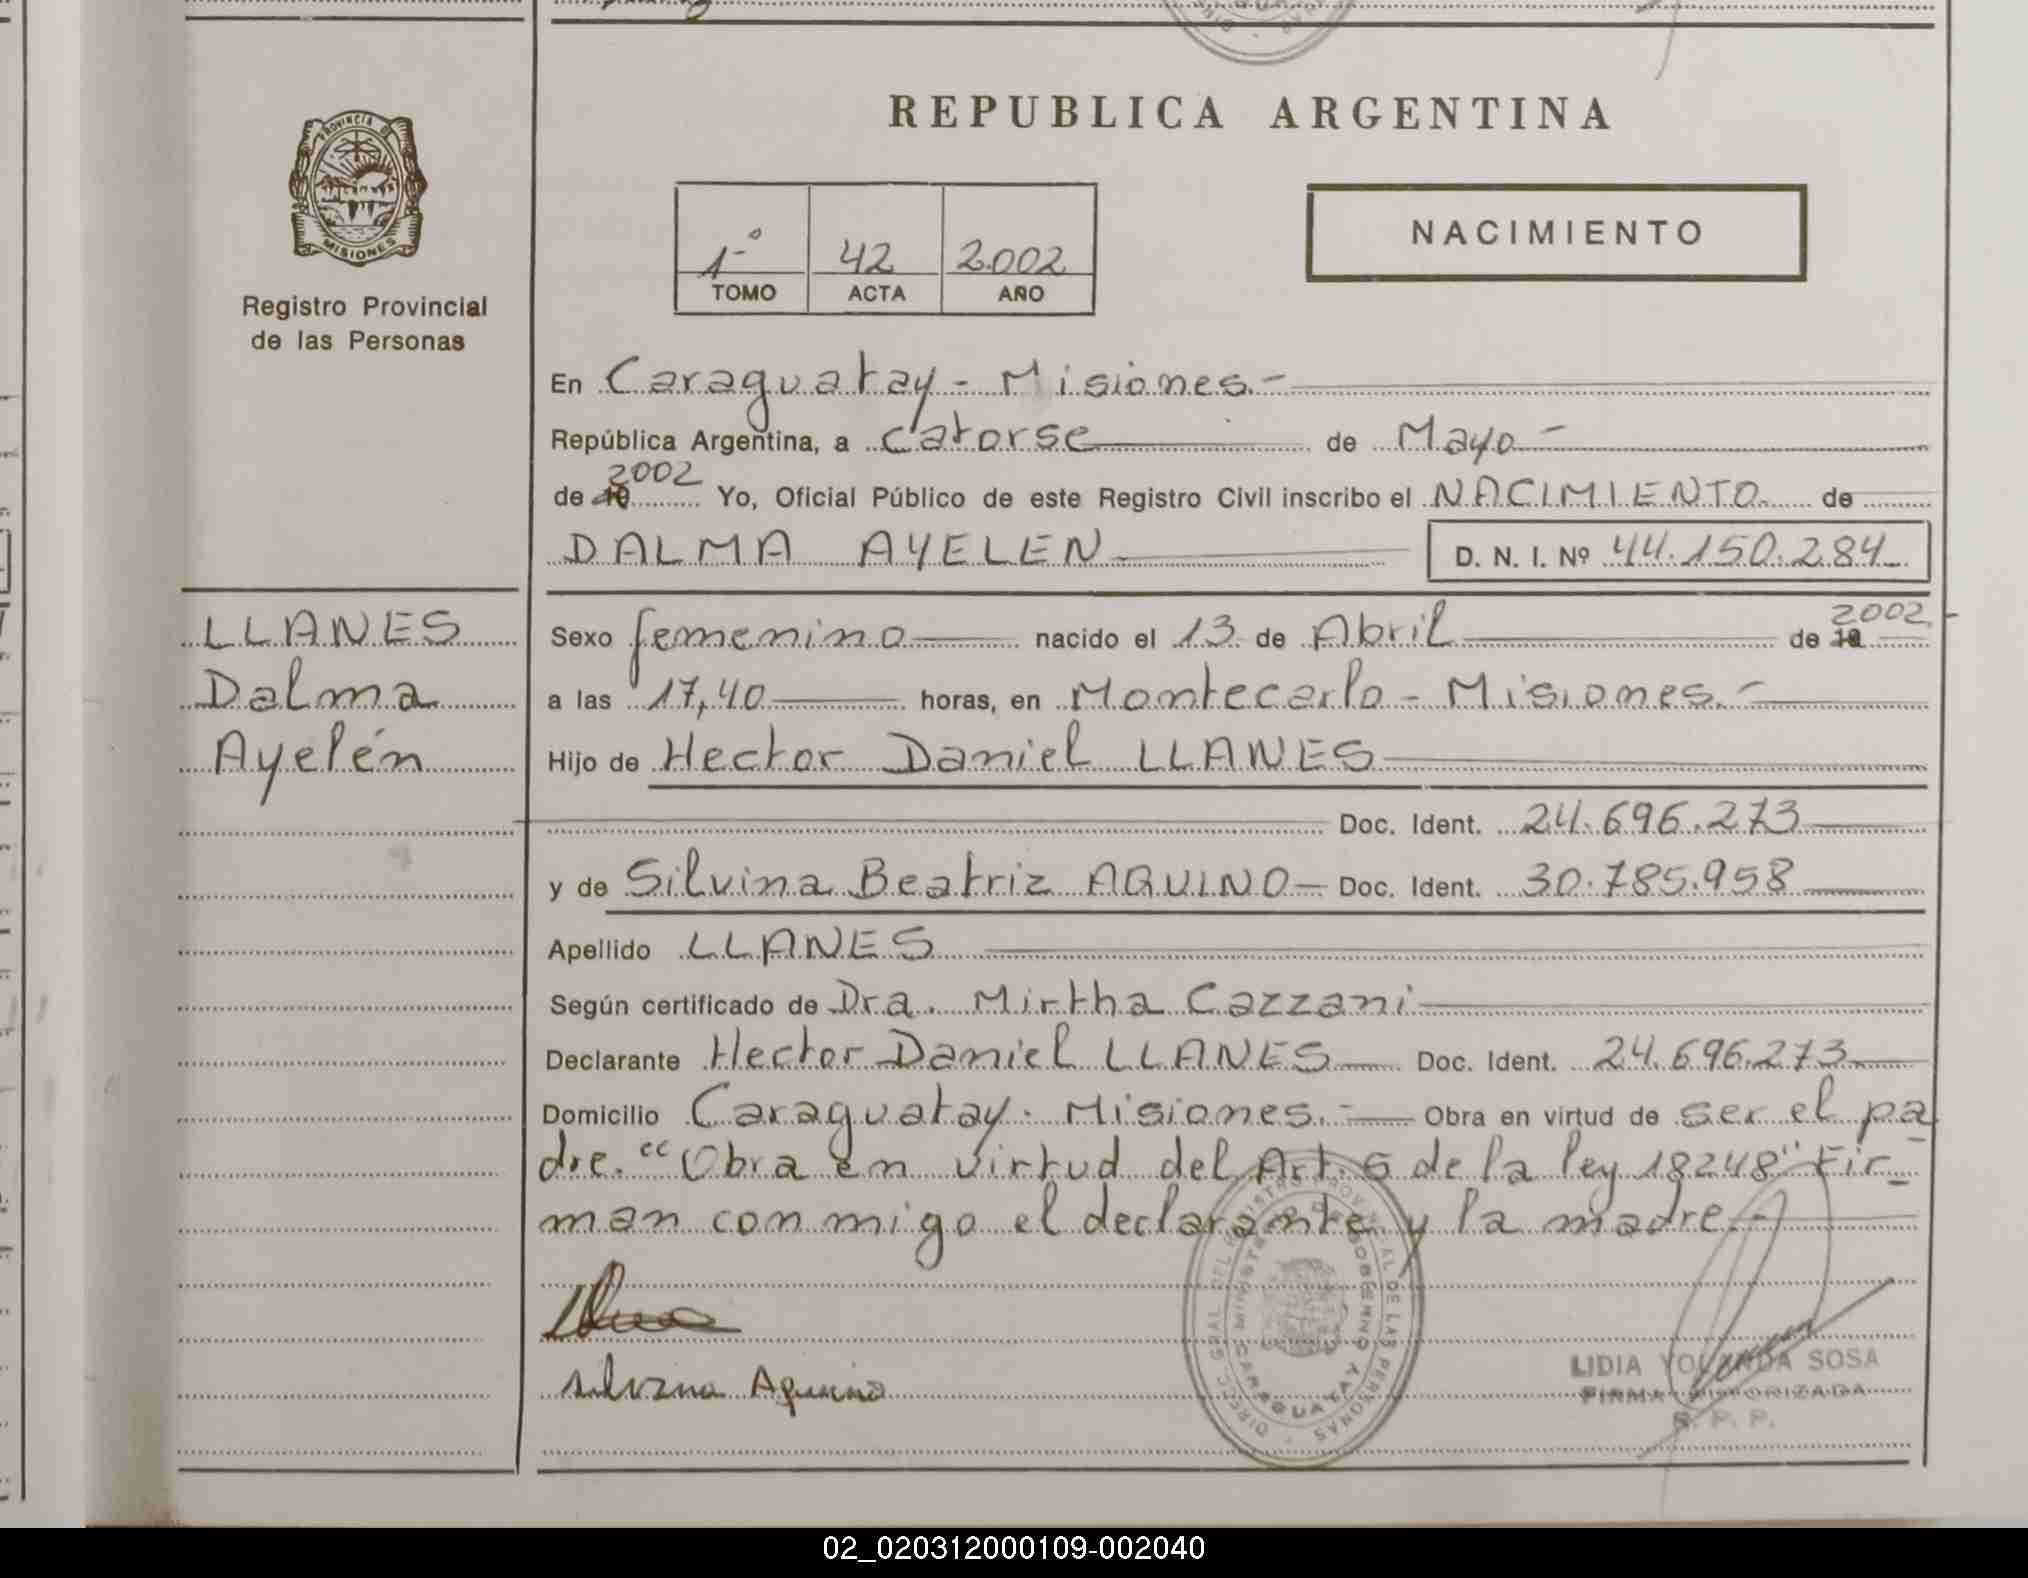 REPUBLICA ARGENTINA
PROVINCIA DE
MISIONES
Registro Provincial
de las Personas
1º 42 2.002
TOMO ACTA AÑO
NACIMIENTO
En Caraguatay - Misiones.-
República Argentina, a catorse de Mayo -
de 19 2002 Yo, Oficial Público de este Registro Civil inscribo el NACIMIENTO de
DALMA AYELEN D. N. I. Nº 44.150.284
LLANES
Dalma
Ayelén
Sexo femenino nacido el 13 de Abril de 19 2002.-
a las 17,40 horas, en Montecarlo - Misiones.-
Hijo de Hector Daniel LLANES
Doc. Ident. 24.696.273
y de Silvina Beatriz AQUINO - Doc. Ident. 30.785.958
Apellido LLANES
Según certificado de Dra. Mirtha Cazzani
Declarante Hector Daniel LLANES Doc. Ident. 24.696.273
Domicilio Caraguatay. Misiones.- Obra en virtud de ser el pa
dre. "Obra en virtud del Art. 5 de la ley 18248" Fir_
man con migo el declarante y la madre.-
DIRECC. GRAL DEL REGISTRO PROVINCIAL DE LAS PERSONAS
MINISTERIO DE GOBIERNO
CARAGUATAY
silvina Aquino
LIDIA YOLANDA SOSA
FIRMA AUTORIZADA
R. P. P.
02_020312000109-002040